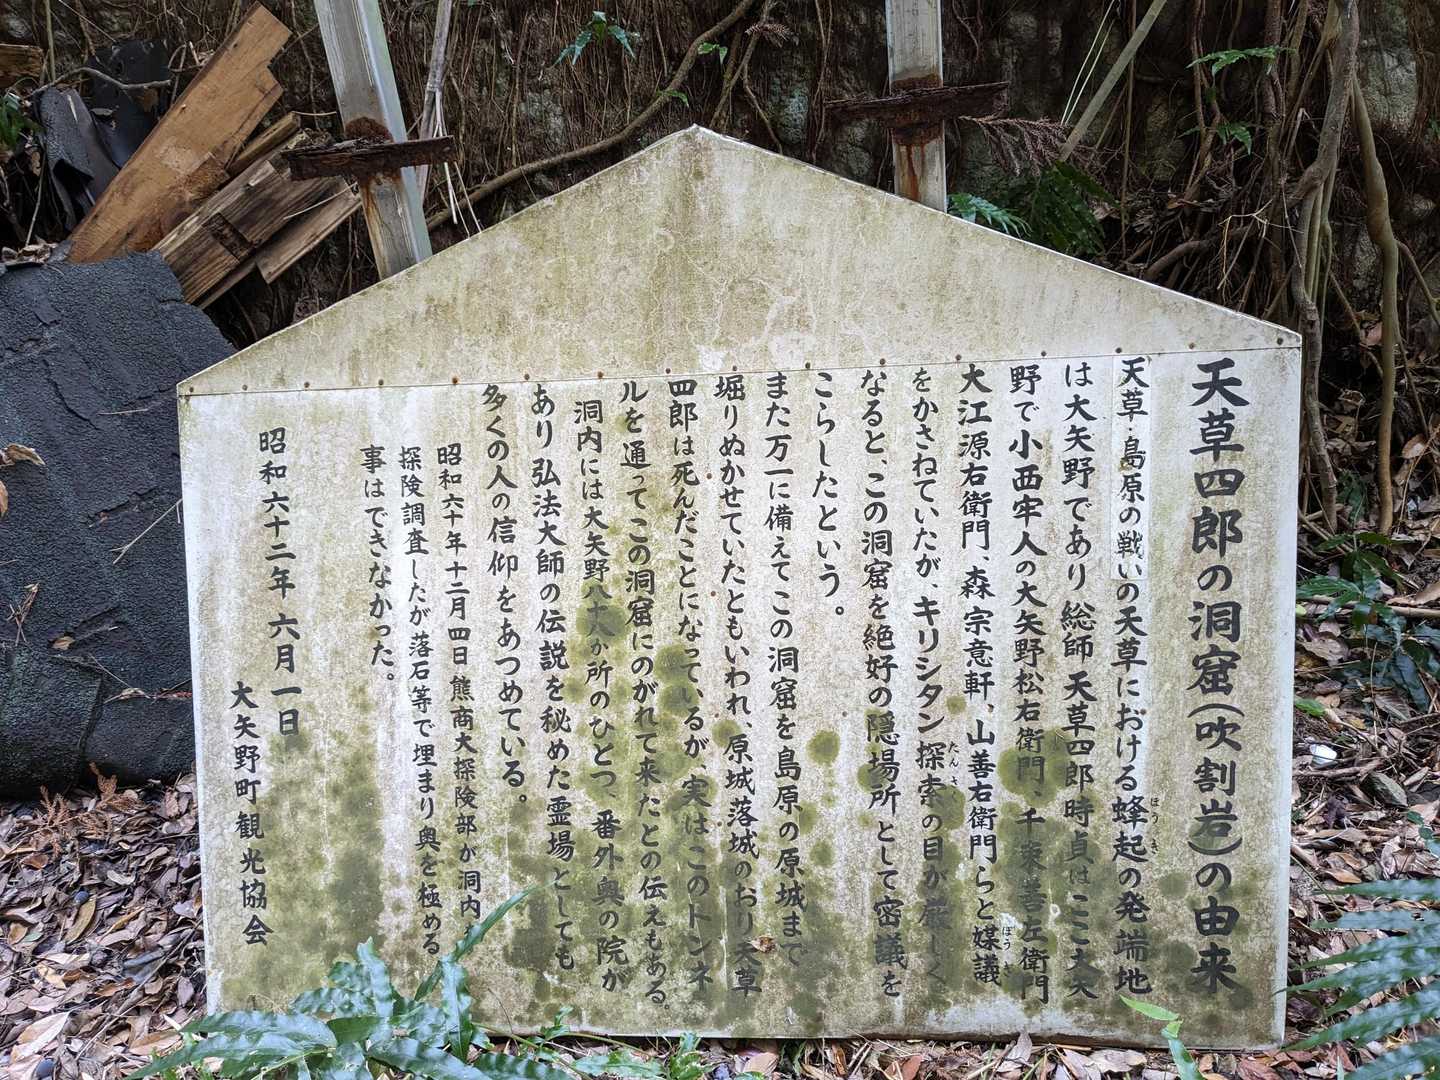 天草四郎の洞窟(吹割岩)の由来
天草・島原の戦いの天草における蜂起の発端地
ほうき
は大矢野であり総師天草四郎時貞はここ大矢
野で小西牢人の大矢野松右衛門、千束善左衛門
大江源右衛門、森宗意軒、山善右衛門らと媒議
ぼうぎ
をかさねていたが、キリシタン探索の目が厳しく
たんさ
なると、この洞窟を絶好の隠場所として密議を
こらしたという。
また万一に備えてこの洞窟を島原の原城まで
堀りぬかせていたともいわれ、原城落城のおり天草
四郎は死んだことになっているが、実はこのトンネ
ルを通ってこの洞窟にのがれて来たとの伝えもある。
洞内には大矢野八十八か所のひとつ、番外奥の院が
あり弘法大師の伝説を秘めた霊場としても
多くの人の信仰をあつめている。
昭和六十年十二月四日熊商大探険部が洞内を
探険調査したが落石等で埋まり奥を極める
事はできなかった。
昭和六十二年六月一日
大矢野町観光協会